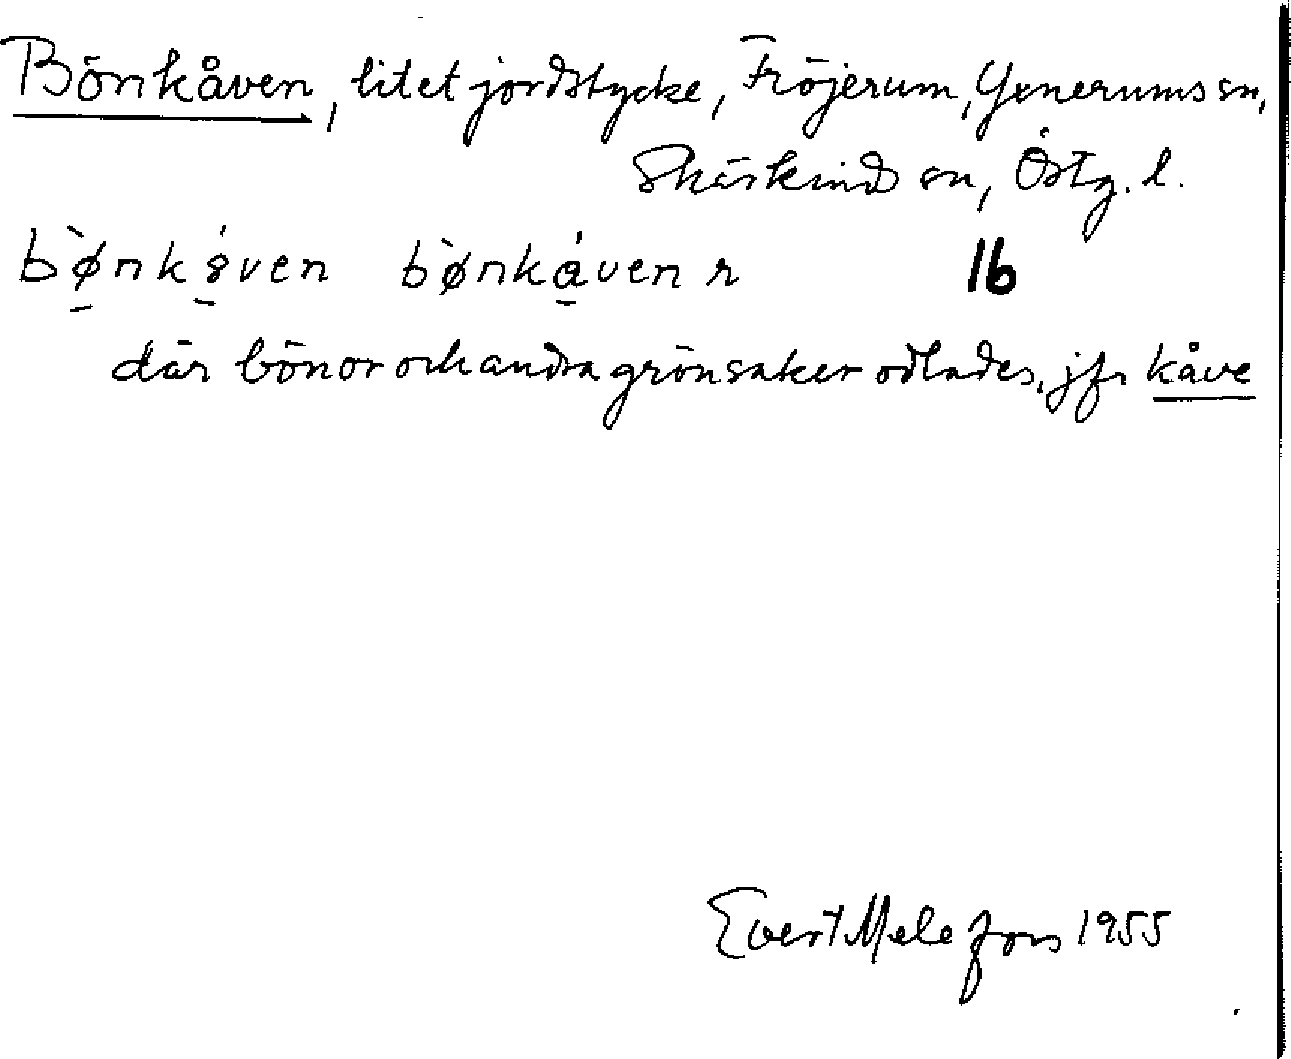 Bönkåven, litet jordstycke, Fröjerum, Yxnerums sn,
Skärkind sn, Östg. l.
bø̀nkåven bø̀nkåven r 16
där bönor och andra grönsaker odlades, jfr kåve
Evert Melefors 1955